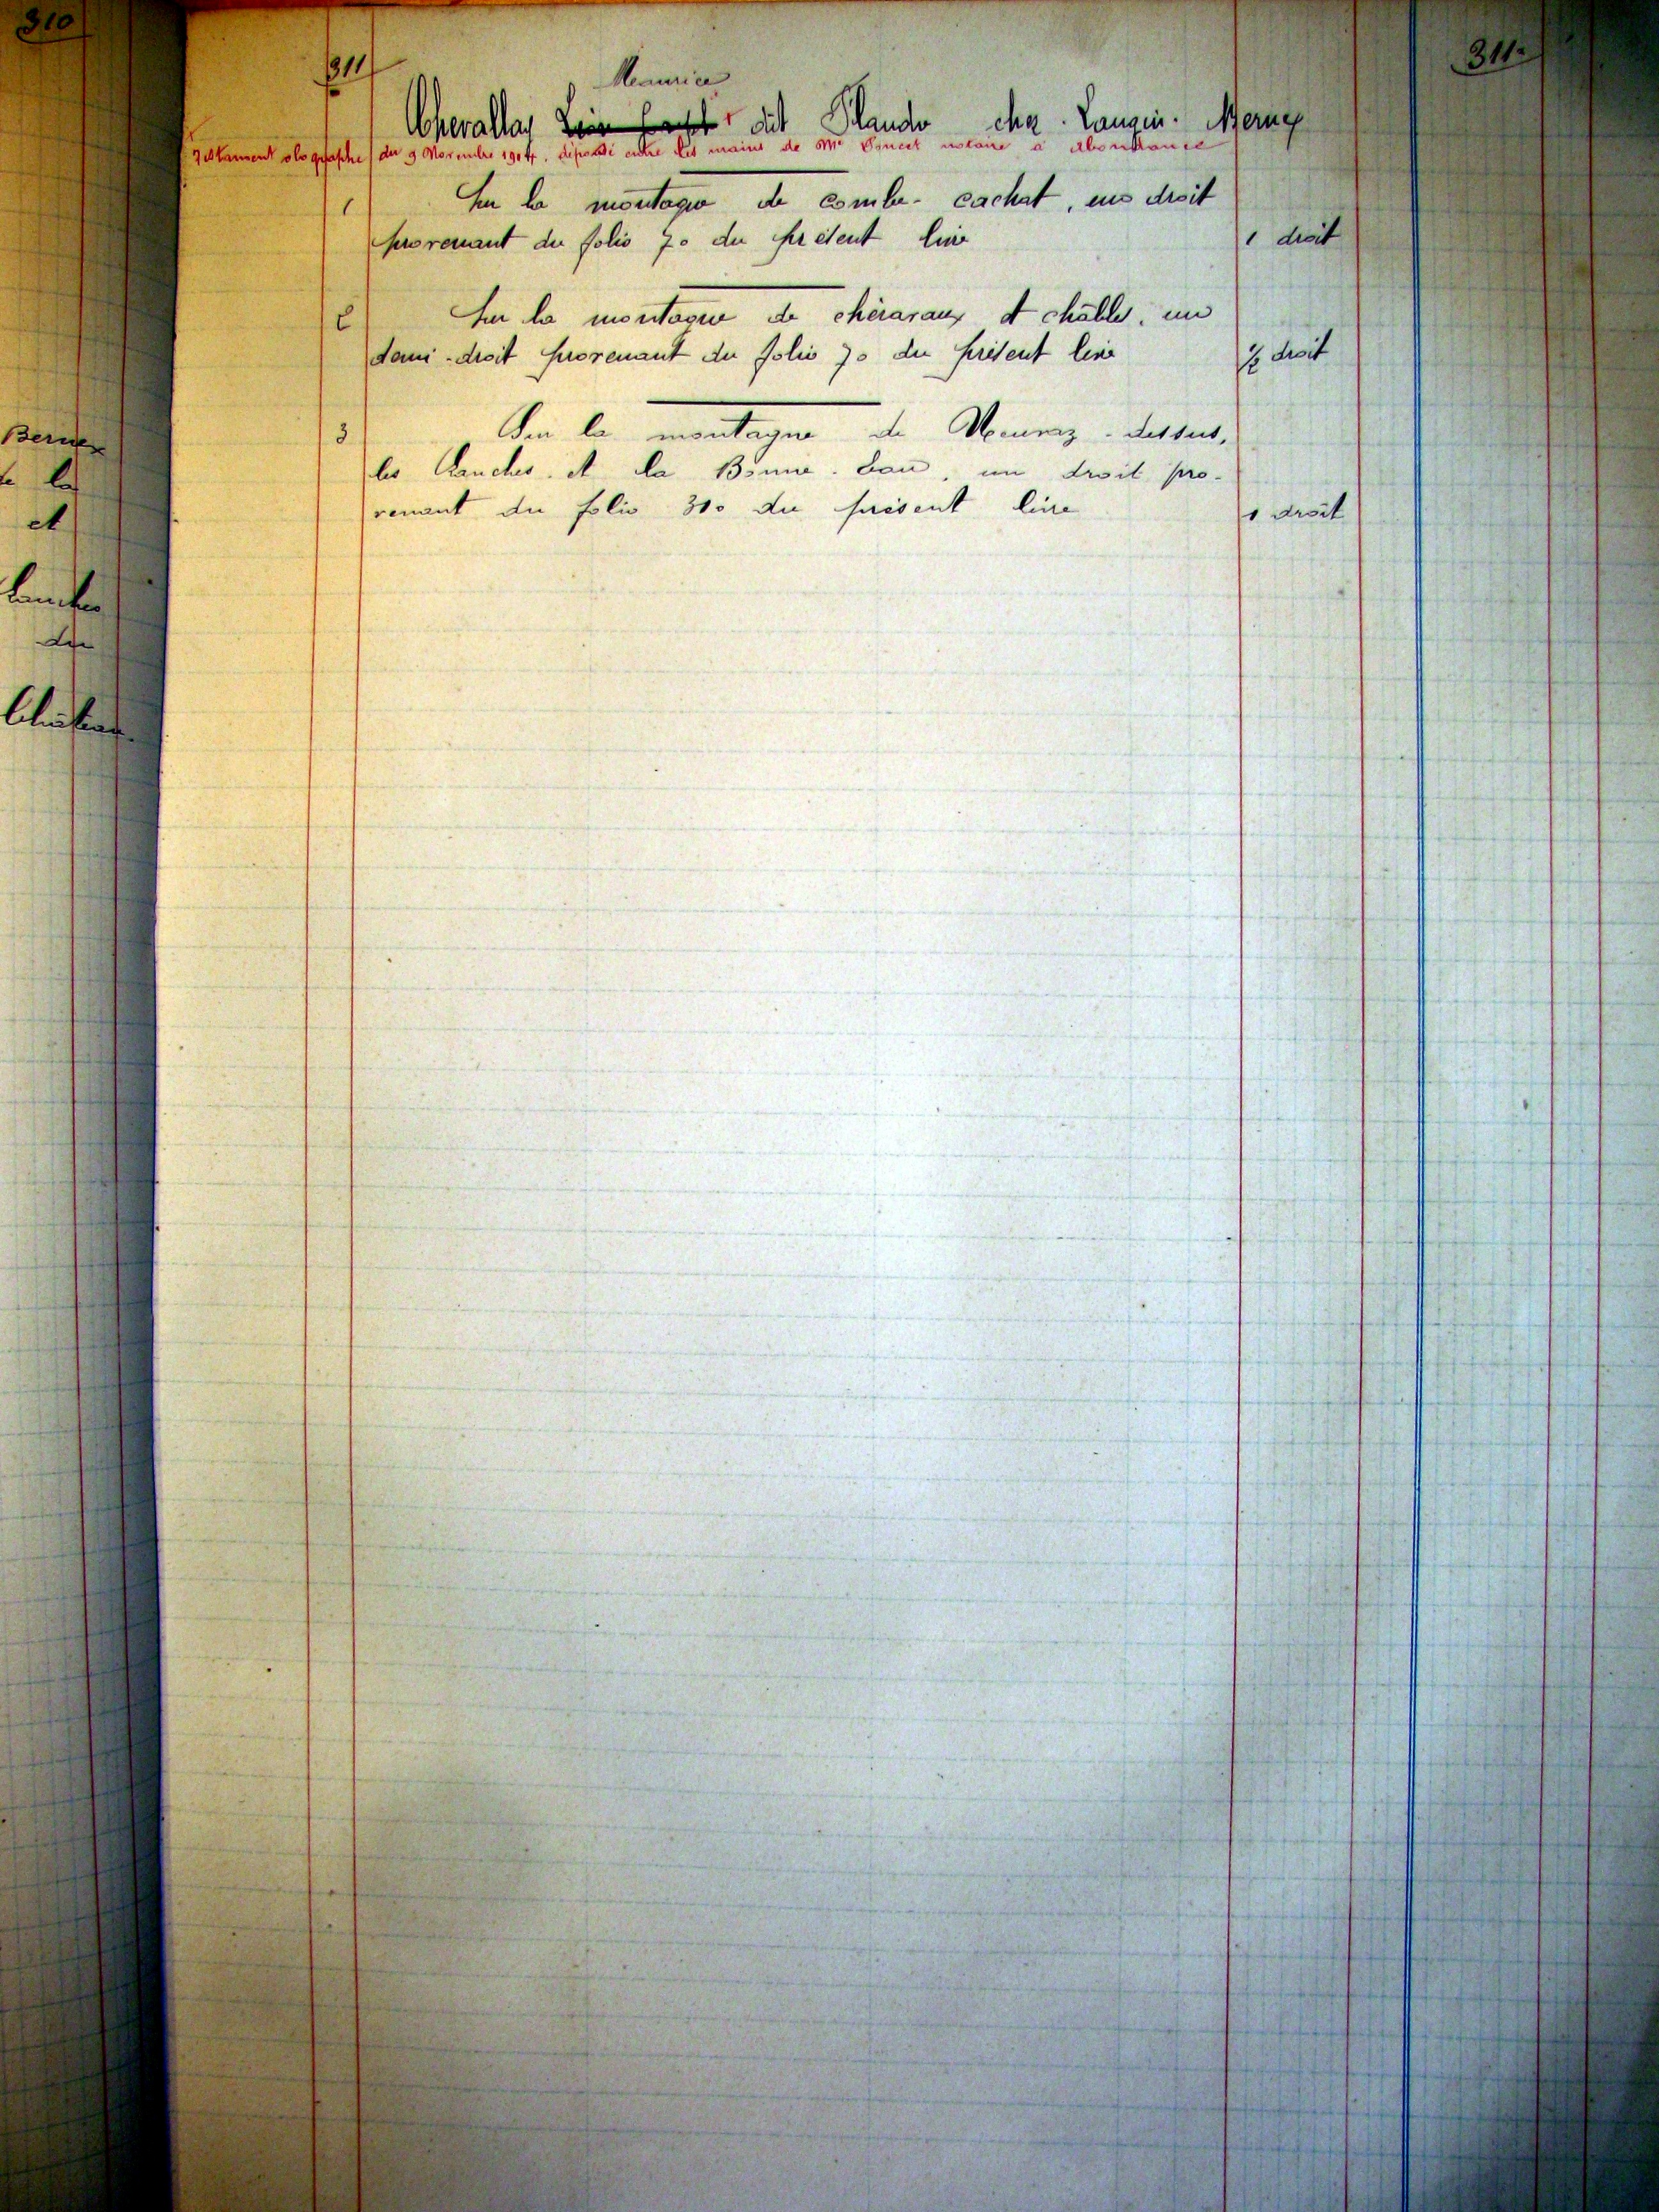 310
311
311
Meaurice
Chevallay dit Plando chez Laugin. Bernex
Testament olographe du 9 Novembre 1904, déposé entre les mains de Me notaire à Abondance
1 Sur la montagne de combe-cachat, un droit
provenant du folio 70 du présent livre 1 droit
2 Sur la montagne de chèvaraux et châbles, un
demi-droit provenant du folio 70 du présent livre 1/2 droit
3 Sur la montagne de Neuvaz-dessus,
les Planches et la Bonne-Eau, un droit pro-
venant du folio 310 du présent livre 1 droit
Bernex
la
et
du